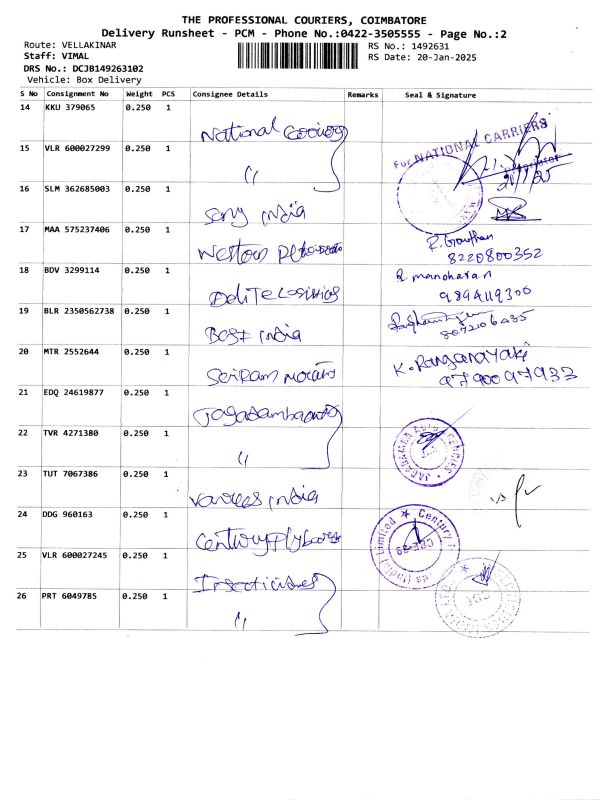 THE PROFESSIONAL COURIERS, COIMBATORE
Delivery Runsheet - PCM - Phone No.:0422-3505555 - Page No.:2
Route: VELLAKINAR
Staff: VIMAL
DRS No.: DCJB149263102
Vehicle: Box Delivery
RS No.: 1492631
RS Date: 20-Jan-2025
S No Consignment No Weight PCS Consignee Details Remarks Seal & Signature
14 KKU 379065 0.250 1 National
15 VLR 600027299 0.250 1 〃 For NATIONAL CARRIERS
16 SLM 362685003 0.250 1 Sony india
17 MAA 575237406 0.250 1 Western R. Gowthan
8220800352
18 BDV 3299114 0.250 1 Delite Logistics R. manoharan
9894119300
19 BLR 2350562738 0.250 1 Best india
20 MTR 2552644 0.250 1 Sriram K. Ranganayaki
9790097933
21 EDQ 24619877 0.250 1
22 TVR 4271380 0.250 1 〃
23 TUT 7067386 0.250 1 india
24 DDG 960163 0.250 1 Centuryply
25 VLR 600027245 0.250 1 Insecticides
26 PRT 6049785 0.250 1 〃